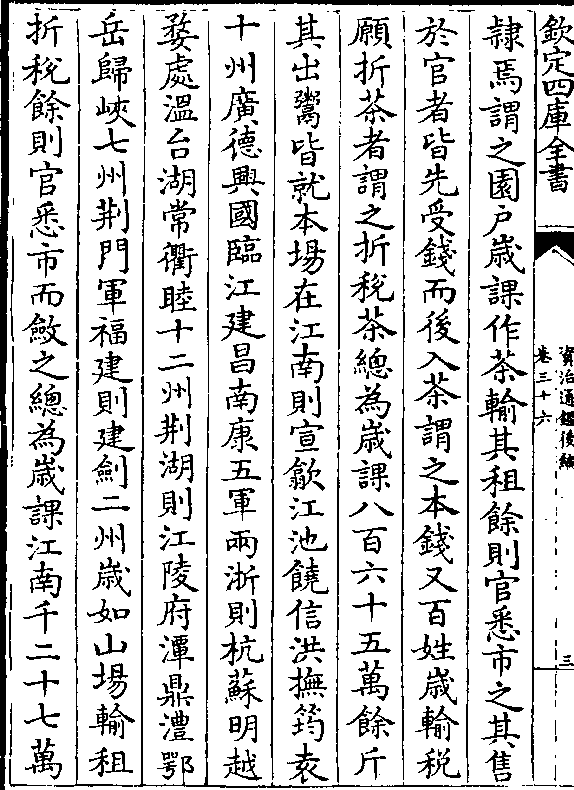 欽定四庫全書
資治通鑑後編
卷三十六
三
隸焉謂之園戶歲課作茶輸其租餘則官悉市之其售
於官者皆先受錢而後入茶謂之本錢又百姓歲輸稅
願折茶者謂之折稅茶總為歲課八百六十五萬餘斤
其出鬻皆就本場在江南則宣歙江池饒信洪撫筠袁
十州廣德興國臨江建昌南康五軍兩浙則杭蘇明越
婺處溫台湖常衢睦十二州荆湖則江陵府潭鼎澧鄂
岳歸峽七州荆門軍福建則建劍二州歲如山場輸租
折稅餘則官悉市而斂之總為歲課江南千二十七萬